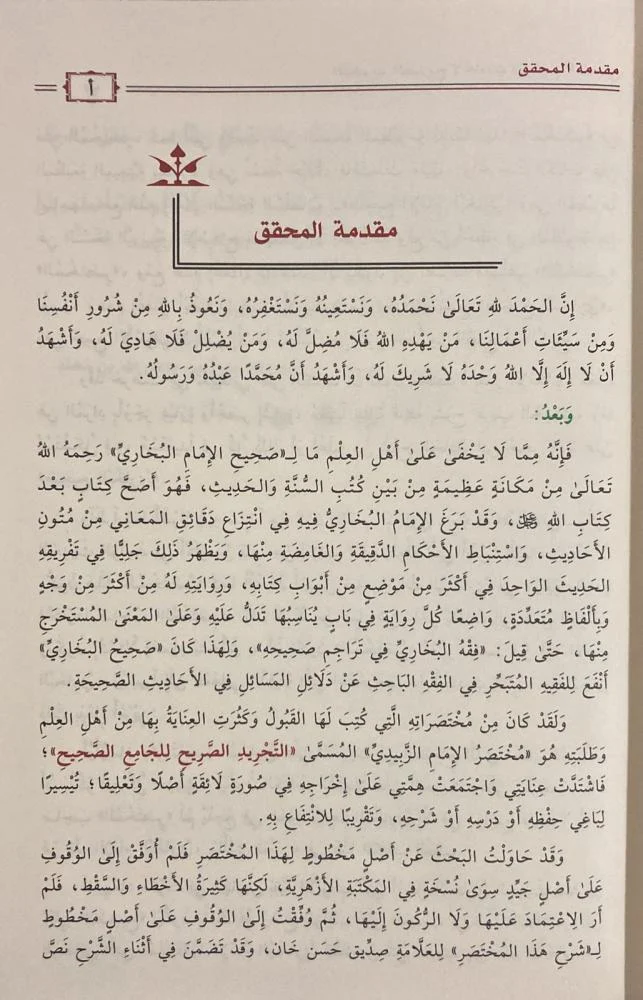 مقدمة المحقق
أ
مقدمة المحقق
إِنَّ الحَمْدَ للهِ تَعَالَىٰ نَحْمَدُهُ، وَنَسْتَعِينُهُ وَنَسْتَغْفِرُهُ، وَنَعُوذُ بِاللهِ مِنْ شُرُورِ أَنْفُسِنَا
وَمِنْ سَيِّئَاتِ أَعْمَالِنَا، مَنْ يَهْدِهِ اللهُ فَلَا مُضِلَّ لَهُ، وَمَنْ يُضْلِلْ فَلَا هَادِيَ لَهُ، وَأَشْهَدُ
أَنْ لَا إِلَهَ إِلَّا اللهُ وَحْدَهُ لَا شَرِيكَ لَهُ، وَأَشْهَدُ أَنَّ مُحَمَّدًا عَبْدُهُ وَرَسُولُهُ.
وَبَعْدُ:
فَإِنَّهُ مِمَّا لَا يَخْفَىٰ عَلَىٰ أَهْلِ العِلْمِ مَا لِـ«صَحِيحِ الإِمَامِ البُخَارِيِّ» رَحِمَهُ اللهُ
تَعَالَىٰ مِنْ مَكَانَةٍ عَظِيمَةٍ مِنْ بَيْنِ كُتُبِ السُّنَّةِ وَالحَدِيثِ، فَهُوَ أَصَحُّ كِتَابٍ بَعْدَ
كِتَابِ اللهِ ﷻ، وَقَدْ بَرَعَ الإِمَامُ البُخَارِيُّ فِيهِ فِي انْتِزَاعِ دَقَائِقِ المَعَانِي مِنْ مُتُونِ
الأَحَادِيثِ، وَاسْتِنْبَاطِ الأَحْكَامِ الدَّقِيقَةِ وَالغَامِضَةِ مِنْهَا، وَيَظْهَرُ ذَلِكَ جَلِيًّا فِي تَفْرِيقِهِ
الحَدِيثَ الوَاحِدَ فِي أَكْثَرَ مِنْ مَوْضِعٍ مِنْ أَبْوَابِ كِتَابِهِ، وَرِوَايَتِهِ لَهُ مِنْ أَكْثَرَ مِنْ وَجْهٍ
وَبِأَلْفَاظٍ مُتَعَدِّدَةٍ، وَاضِعًا كُلَّ رِوَايَةٍ فِي بَابٍ يُنَاسِبُهَا تَدَلُّ عَلَيْهِ وَعَلَىٰ المَعْنَىٰ المُسْتَخْرَجِ
مِنْهَا، حَتَّىٰ قِيلَ: «فِقْهُ البُخَارِيِّ فِي تَرَاجِمِ صَحِيحِهِ»، وَلِهَذَا كَانَ «صَحِيحُ البُخَارِيِّ»
أَنْفَعَ لِلفَقِيهِ المُتَبَحِّرِ فِي الفِقْهِ البَاحِثِ عَنْ دَلَائِلِ المَسَائِلِ فِي الأَحَادِيثِ الصَّحِيحَةِ.
وَلَقَدْ كَانَ مِنْ مُخْتَصَرَاتِهِ الَّتِي كُتِبَ لَهَا القَبُولُ وَكَثُرَتِ العِنَايَةُ بِهَا مِنْ أَهْلِ العِلْمِ
وَطَلَبَتِهِ هُوَ «مُخْتَصَرُ الإِمَامِ الزَّبِيدِيِّ» المُسَمَّىٰ «التَّجْرِيدِ الصَّرِيحِ لِلجَامِعِ الصَّحِيحِ»؛
فَاشْتَدَّتْ عِنَايَتِي وَاجْتَمَعَتْ هِمَّتِي عَلَىٰ إِخْرَاجِهِ فِي صُورَةٍ لَائِقَةٍ أَصْلًا وَتَعْلِيقًا؛ تُيْسِيرًا
لِبَاغِي حِفْظِهِ أَوْ دَرْسِهِ أَوْ شَرْحِهِ، وَتَقْرِيبًا لِلانْتِفَاعِ بِهِ.
وَقَدْ حَاوَلْتُ البَحْثَ عَنْ أَصْلٍ مَخْطُوطٍ لِهَذَا المُخْتَصَرِ فَلَمْ أُوَفَّقْ إِلَىٰ الوُقُوفِ
عَلَىٰ أَصْلٍ جَيِّدٍ سِوَىٰ نُسْخَةٍ فِي المَكْتَبَةِ الأَزْهَرِيَّةِ، لَكِنَّهَا كَثِيرَةُ الأَخْطَاءِ وَالسَّقْطِ، فَلَمْ
أَرَ الِاعْتِمَادَ عَلَيْهَا وَلَا الرُّكُونَ إِلَيْهَا، ثُمَّ وُفِّقْتُ إِلَىٰ الوُقُوفِ عَلَىٰ أَصْلٍ مَخْطُوطٍ
لِـ«شَرْحِ هَذَا المُخْتَصَرِ» لِلعَلَّامَةِ صِدِّيق حَسَن خَان، وَقَدْ تَضَمَّنَ فِي أَثْنَاءِ الشَّرْحِ نَصَّ